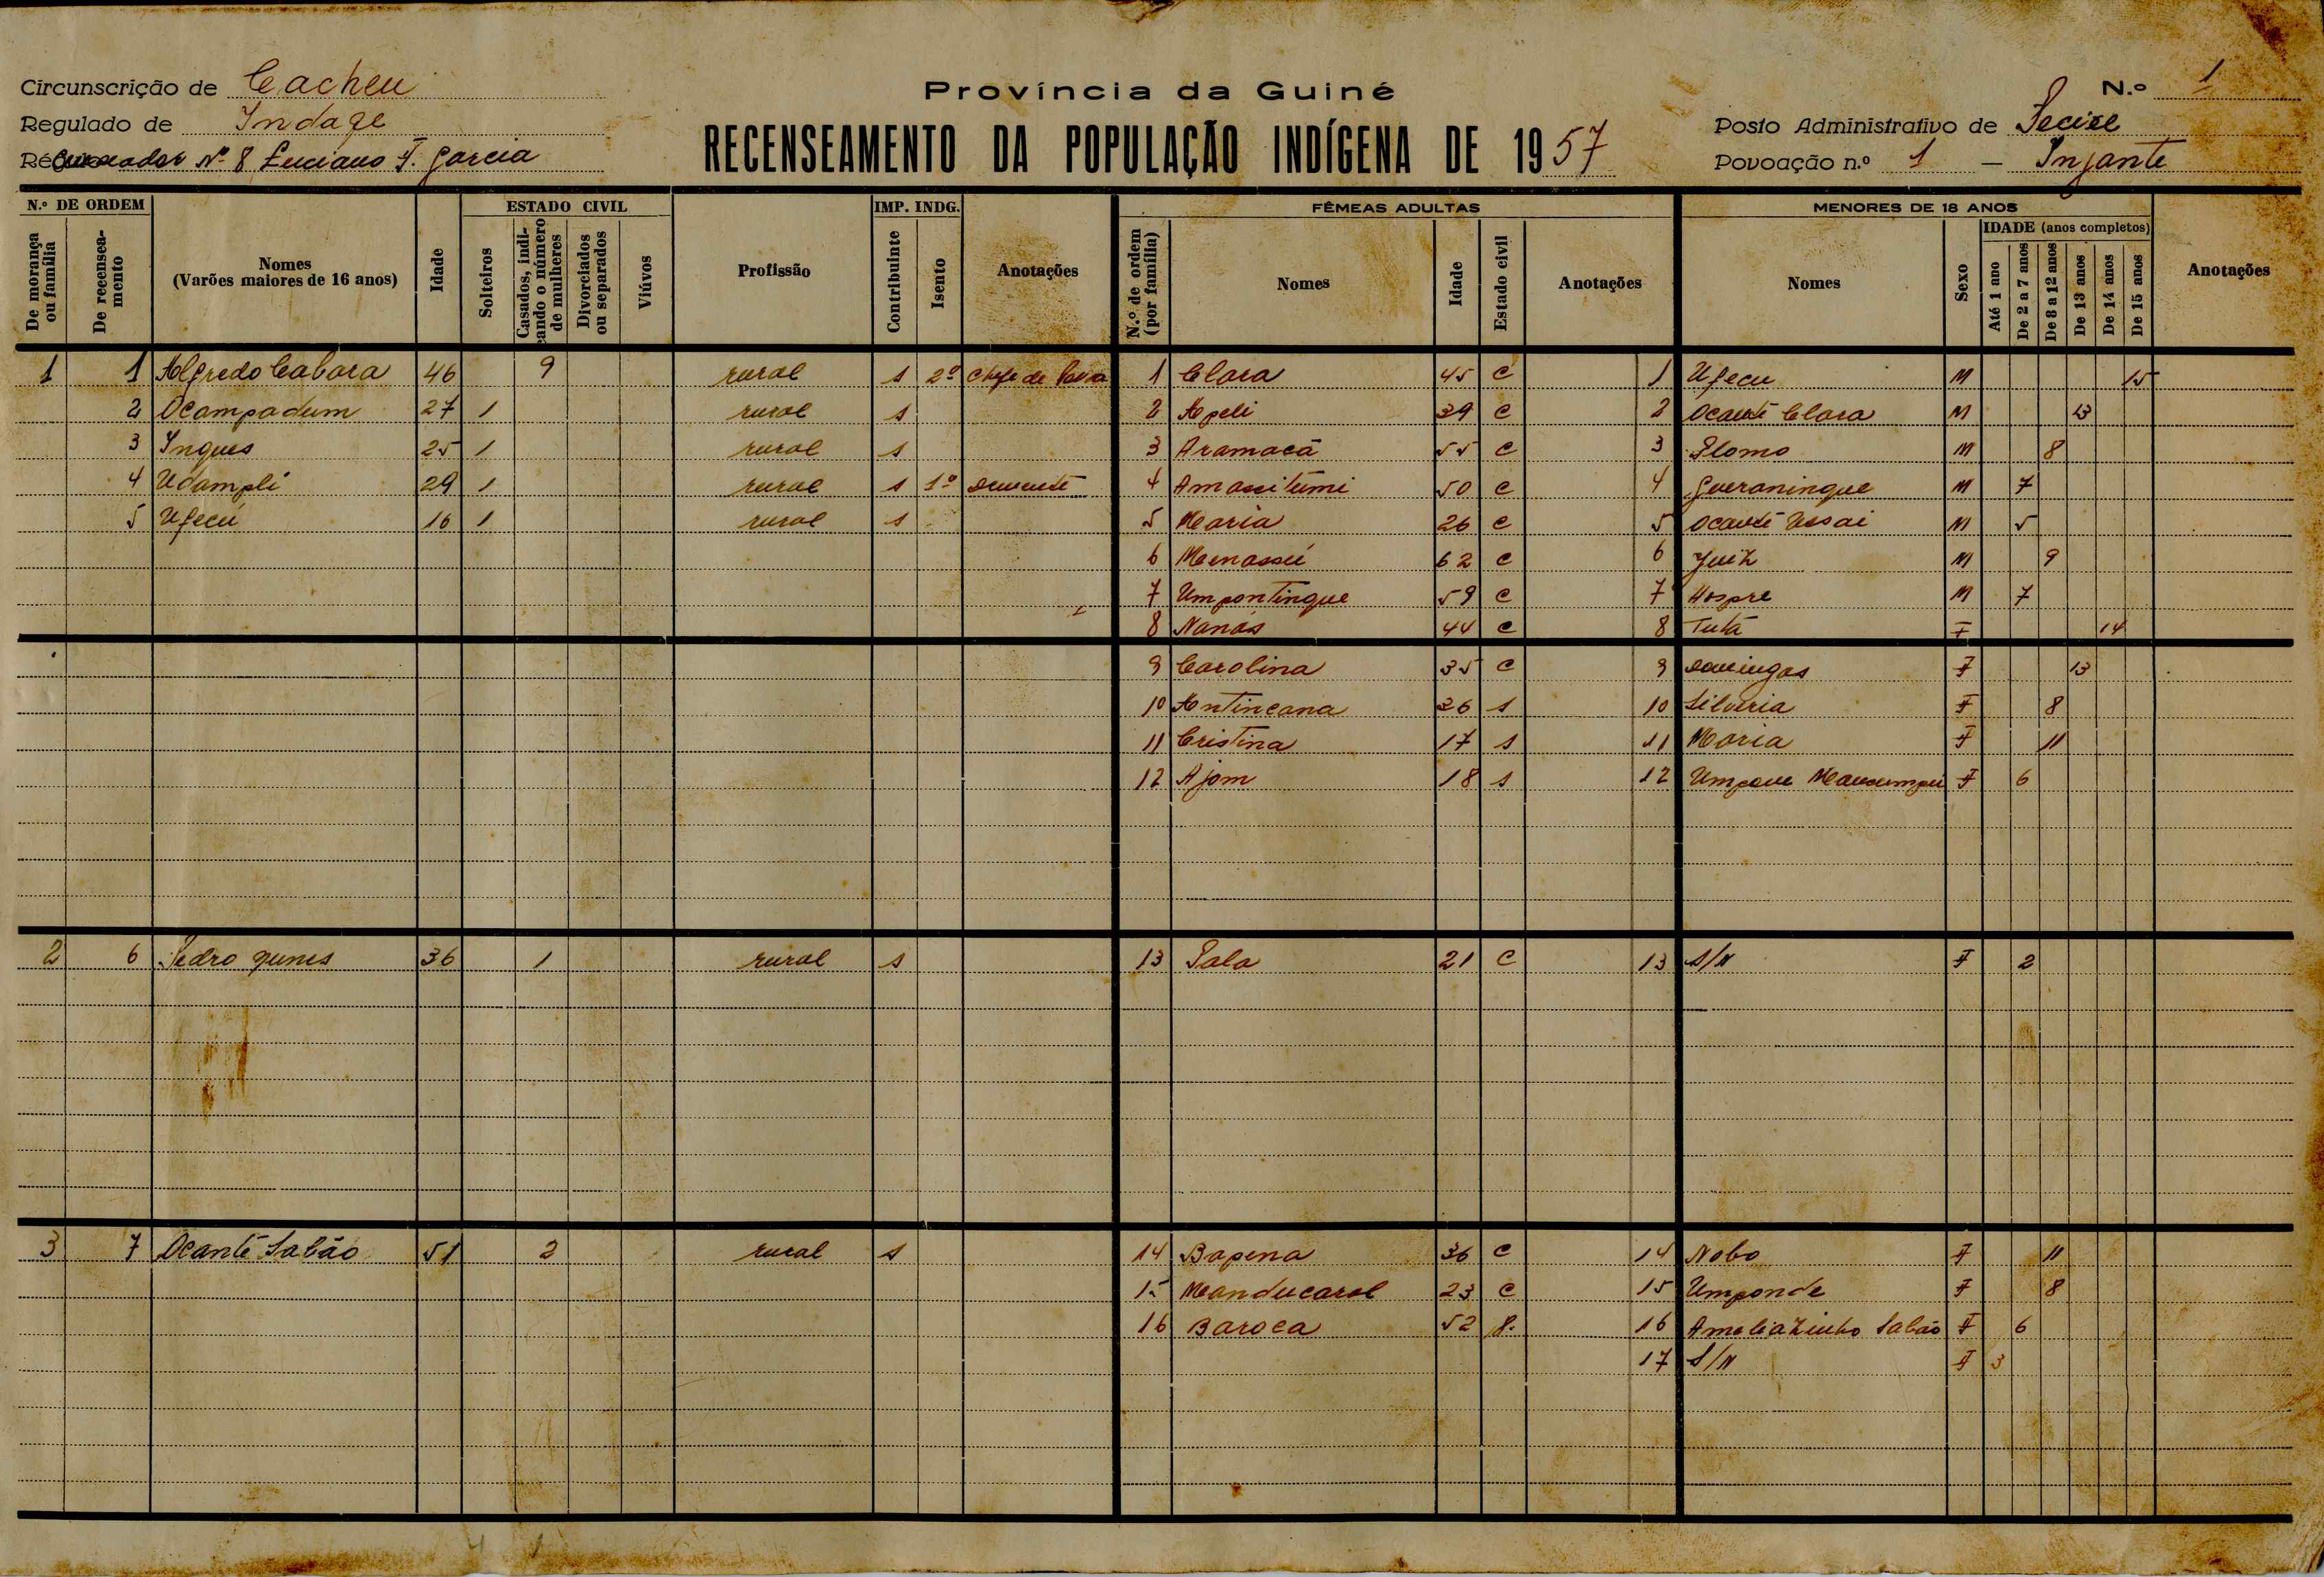 Província da Guiné
RECENSEAMENTO DA POPULAÇÃO INDÍGENA DE 1957
Circunscrição de Cacheu
Regulado de
Nº 8 Luciano F. Garcia
N.º 1
Posto Administrativo de
Povoação n.º 1 –
N.º DE ORDEM ESTADO CIVIL IMP. INDG. FÊMEAS ADULTAS MENORES DE 18 ANOS
De morança ou família De recenseamento Nomes (Varões maiores de 16 anos) Idade Solteiros Casados, indicando o número de mulheres Divorciados ou separados Viúvos Profissão Contribuinte Isento Anotações N.º de ordem (por família) Nomes Idade Estado civil Anotações Nomes Sexo IDADE (anos completos) Até 1 ano De 2 a 7 anos De 8 a 12 anos De 13 anos De 14 anos De 15 anos Anotações
1 1 Alfredo Cabara 46 9 rural s 2º Chefe de 1 Clara 45 c 1 Ufecu M 15
2 Ocampadum 27 1 rural s 2 Apeli 39 c 2 Ocanté Clara M 13
3 Ingues 25 1 rural s 3 Aramacã 55 c 3 Plomo M 8
4 Ucampli 29 1 rural s 1º demente 4 50 c 4 M 7
5 Ufecú 16 1 rural s 5 Maria 26 c 5 Ocanté Ussai M 5
6 Menassú 62 c 6 M 9
7 Umpontingue 59 c 7 Hospre M 7
8 Nanás 44 c 8 Tutá F 14
9 Carolina 35 c 9 Domingas F 13
10 Antincana 26 s 10 Silvéria F 8
11 Cristina 17 s 11 Maria F 11
12 Ajom 18 s 12 F 6
2 6 Pedro Gunes 36 1 rural s 13 Sala 21 c 13 S/N F 2
3 7 Ocanté Sabão 51 2 rural s 14 Bapena 36 c 14 Nobo F 11
15 Manducarol 23 c 15 Umponde F 8
16 Baroca 52 16 Ameliazinha Sabão F 6
17 S/N F 3